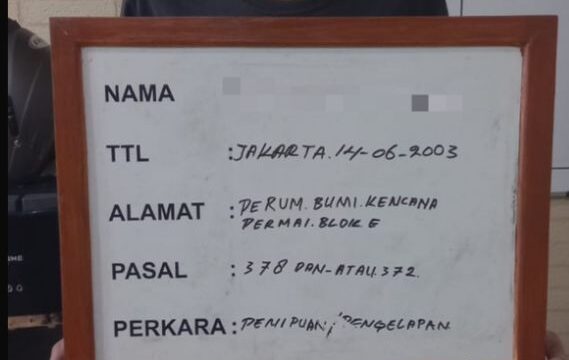 NAMA
TTL :JAKARTA.14-06-2003
ALAMAT :PERUM.BUMI.KENCANA
PERMAI.BLOK E
PASAL : 378 DAN-ATAU.372.
PERKARA : PENIPUAN/PENGELAPAN